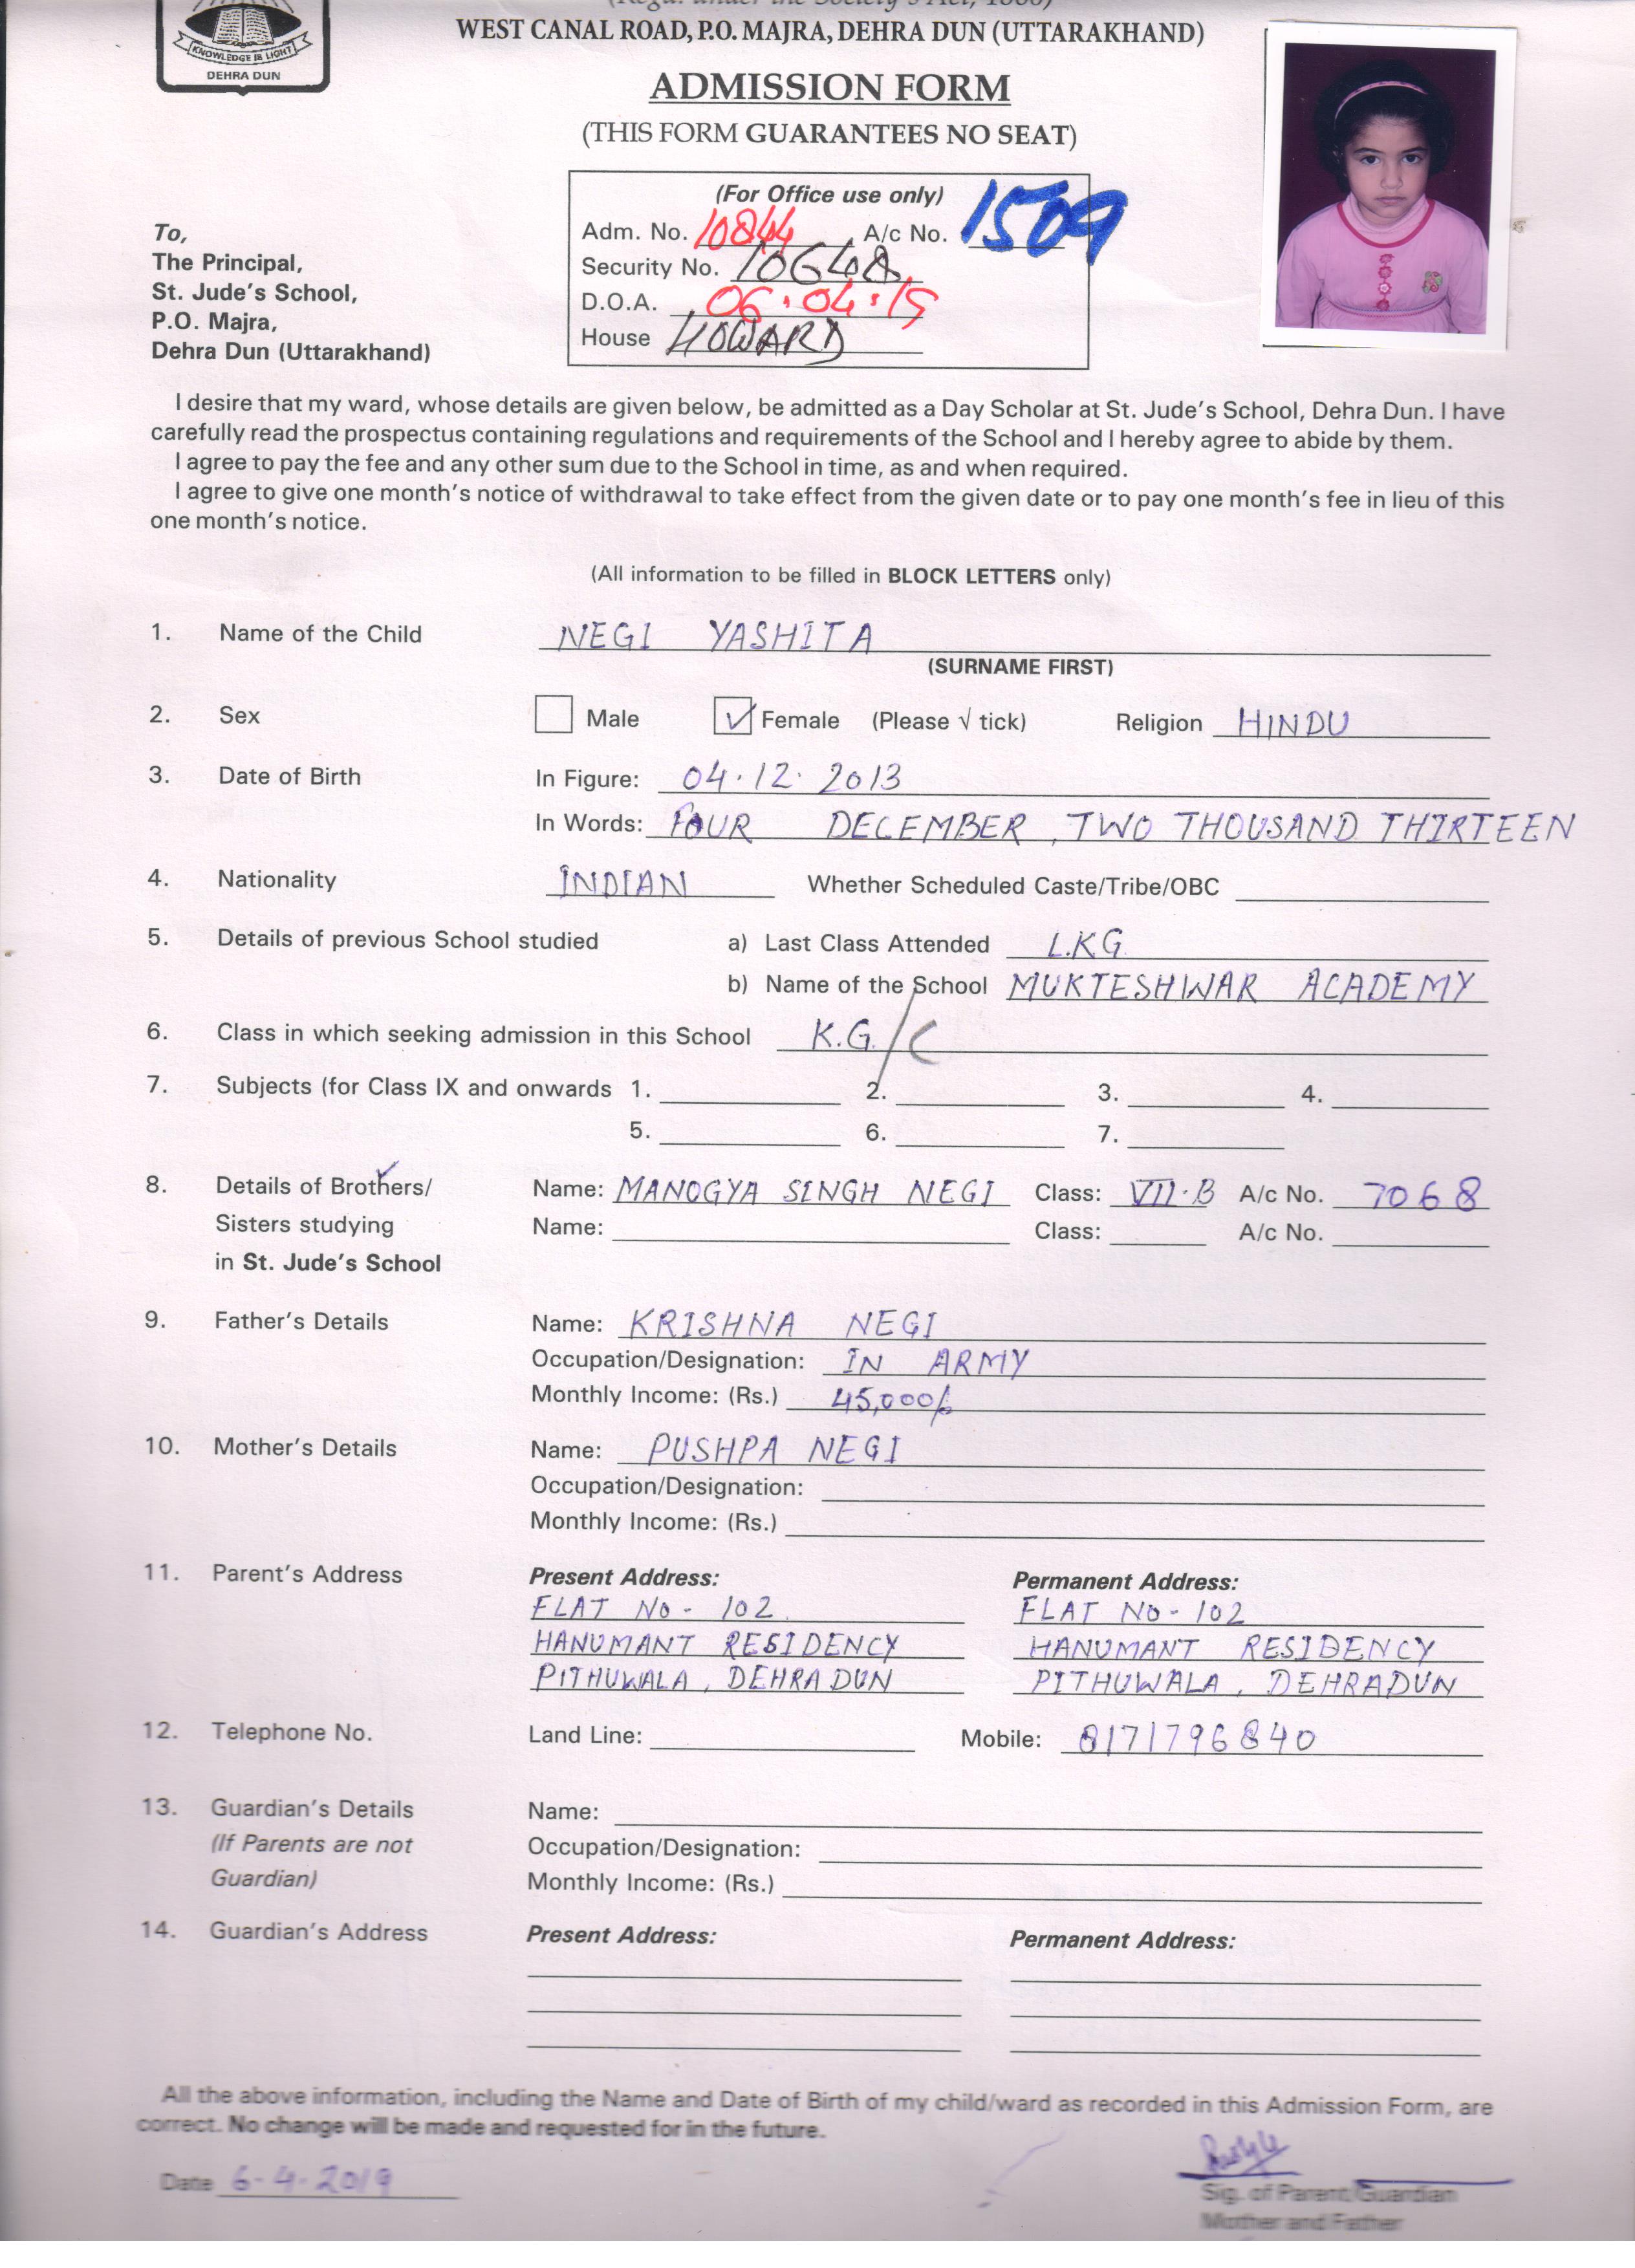 (Regd. under the Society's Act, 1860)
KNOWLEDGE IS LIGHT
DEHRA DUN
WEST CANAL ROAD, P.O. MAJRA, DEHRA DUN (UTTARAKHAND)
ADMISSION FORM
(THIS FORM GUARANTEES NO SEAT)
(For Office use only)
Adm. No. 10844 A/c No. 1509
Security No. 10648
D.O.A. 06.04.19
House HOWARD
To,
The Principal,
St. Jude's School,
P.O. Majra,
Dehra Dun (Uttarakhand)
I desire that my ward, whose details are given below, be admitted as a Day Scholar at St. Jude's School, Dehra Dun. I have
carefully read the prospectus containing regulations and requirements of the School and I hereby agree to abide by them.
I agree to pay the fee and any other sum due to the School in time, as and when required.
I agree to give one month's notice of withdrawal to take effect from the given date or to pay one month's fee in lieu of this
one month's notice.
(All information to be filled in BLOCK LETTERS only)
1. Name of the Child NEGI YASHITA
(SURNAME FIRST)
2. Sex Male ✓ Female (Please √ tick) Religion HINDU
3. Date of Birth In Figure: 04.12.2013
In Words: FOUR DECEMBER, TWO THOUSAND THIRTEEN
4. Nationality INDIAN Whether Scheduled Caste/Tribe/OBC
5. Details of previous School studied a) Last Class Attended L.KG
b) Name of the School MUKTESHWAR ACADEMY
6. Class in which seeking admission in this School K.G./C
7. Subjects (for Class IX and onwards 1. 2. 3. 4.
5. 6. 7.
8. Details of Brothers/ Name: MANOGYA SINGH NEGI Class: VII.B A/c No. 7068
Sisters studying Name: Class: A/c No.
in St. Jude's School
9. Father's Details Name: KRISHNA NEGI
Occupation/Designation: IN ARMY
Monthly Income: (Rs.) 45,000/-
10. Mother's Details Name: PUSHPA NEGI
Occupation/Designation:
Monthly Income: (Rs.)
11. Parent's Address Present Address: Permanent Address:
FLAT NO - 102 FLAT NO - 102
HANUMANT RESIDENCY HANUMANT RESIDENCY
PITHUWALA, DEHRADUN PITHUWALA, DEHRADUN
12. Telephone No. Land Line: Mobile: 8171796840
13. Guardian's Details Name:
(If Parents are not Occupation/Designation:
Guardian) Monthly Income: (Rs.)
14. Guardian's Address Present Address: Permanent Address:
All the above information, including the Name and Date of Birth of my child/ward as recorded in this Admission Form, are
correct. No change will be made and requested for in the future.
Date 6-4-2019
Sig. of Parent/Guardian
Mother and Father